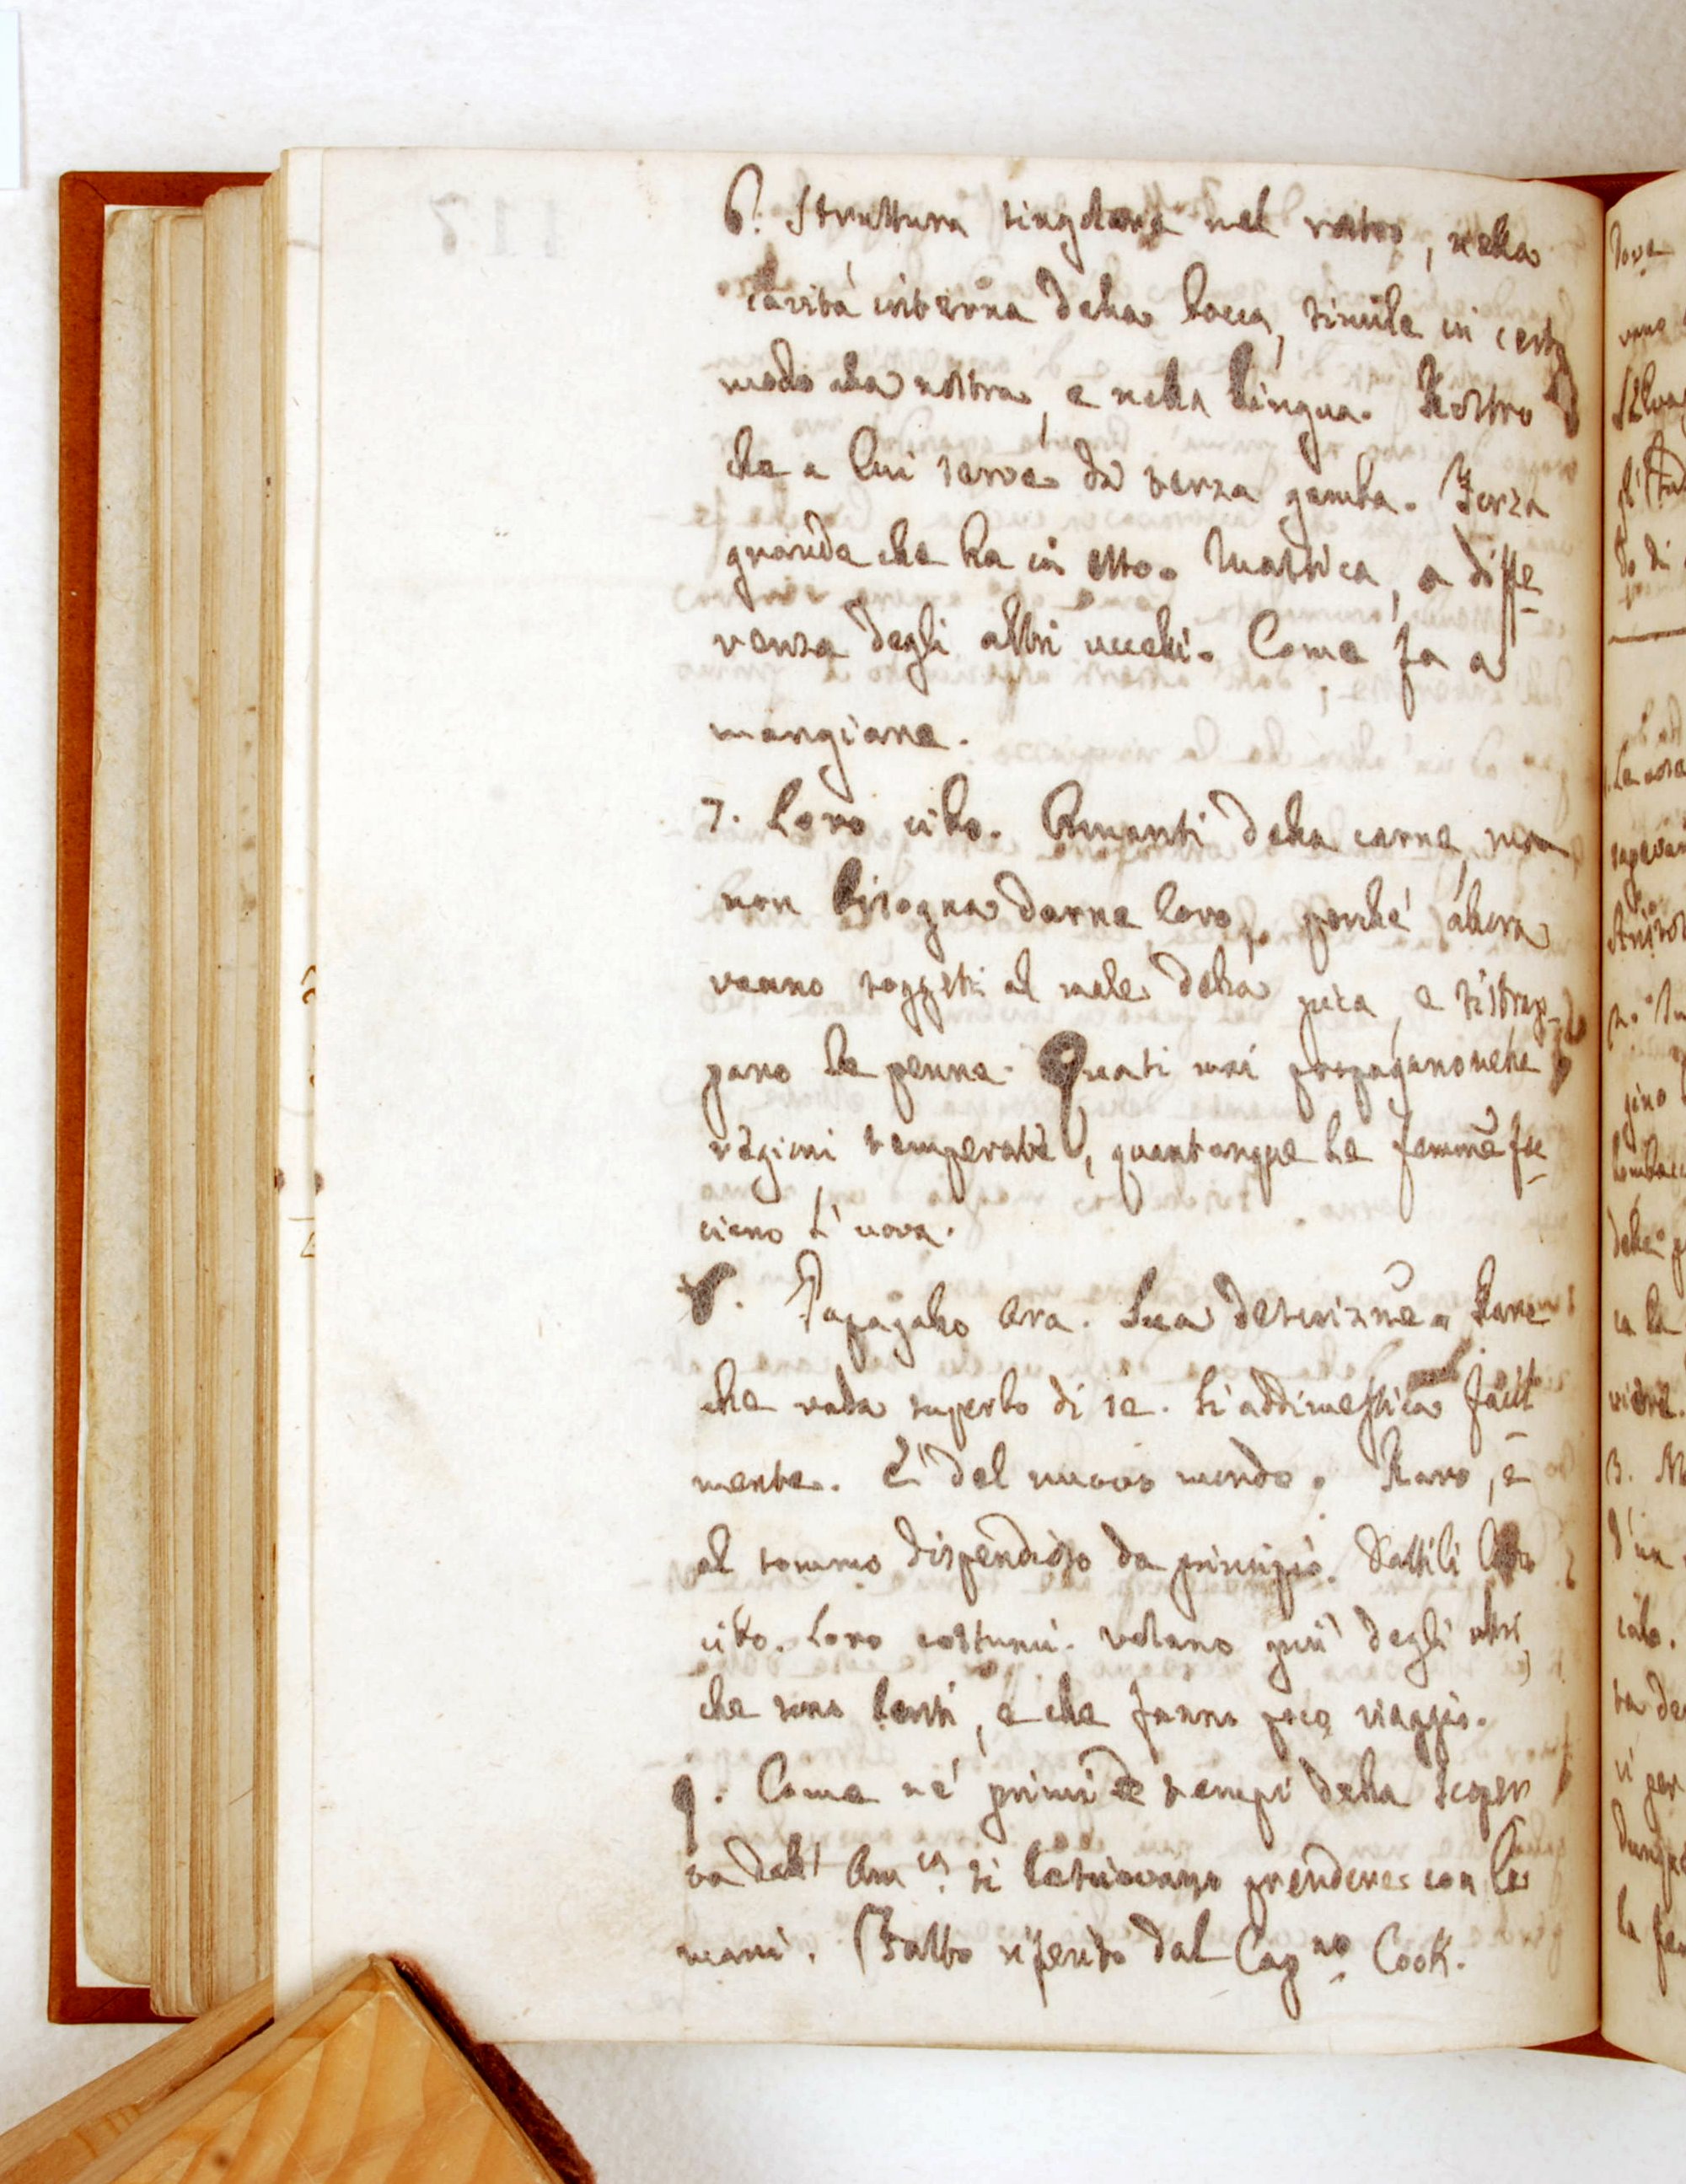 6. Struttura singolare nel rostro, nella
cavità interna della bocca, simile in certo
modo alla nostra, e nella lingua. Rostro
che a lui serve da terza gamba. Forza
grande che ha in esso. Mastica, a diffe-
renza degli altri uccelli. Come fa a
mangiare.
7. Loro cibo. Amanti della carne, ma
non bisogna darne loro, perché allora
vanno soggetti al male della pica, e si strap-
pano le penne. Quasi mai propagano nelle
regioni temperate, quantunque le femmē fac-
ciano l'uova.
8. Papagallo Ara. Sua descriznē. Pare
che vada superbo di se. Si addimestica facil-
mente. È del nuovo mondo. Raro, e
al sommo dispendioso da principio. Dattili
cibo. Loro costumi. Volano più degli altri,
che sono lenti, e che fanno poco viaggio.
9. Come ne' primi tempi della scoper
ta dell' Am.ca si lasciavano prendere con le
mani. Fatto riferito dal Cap.no Cook.
117